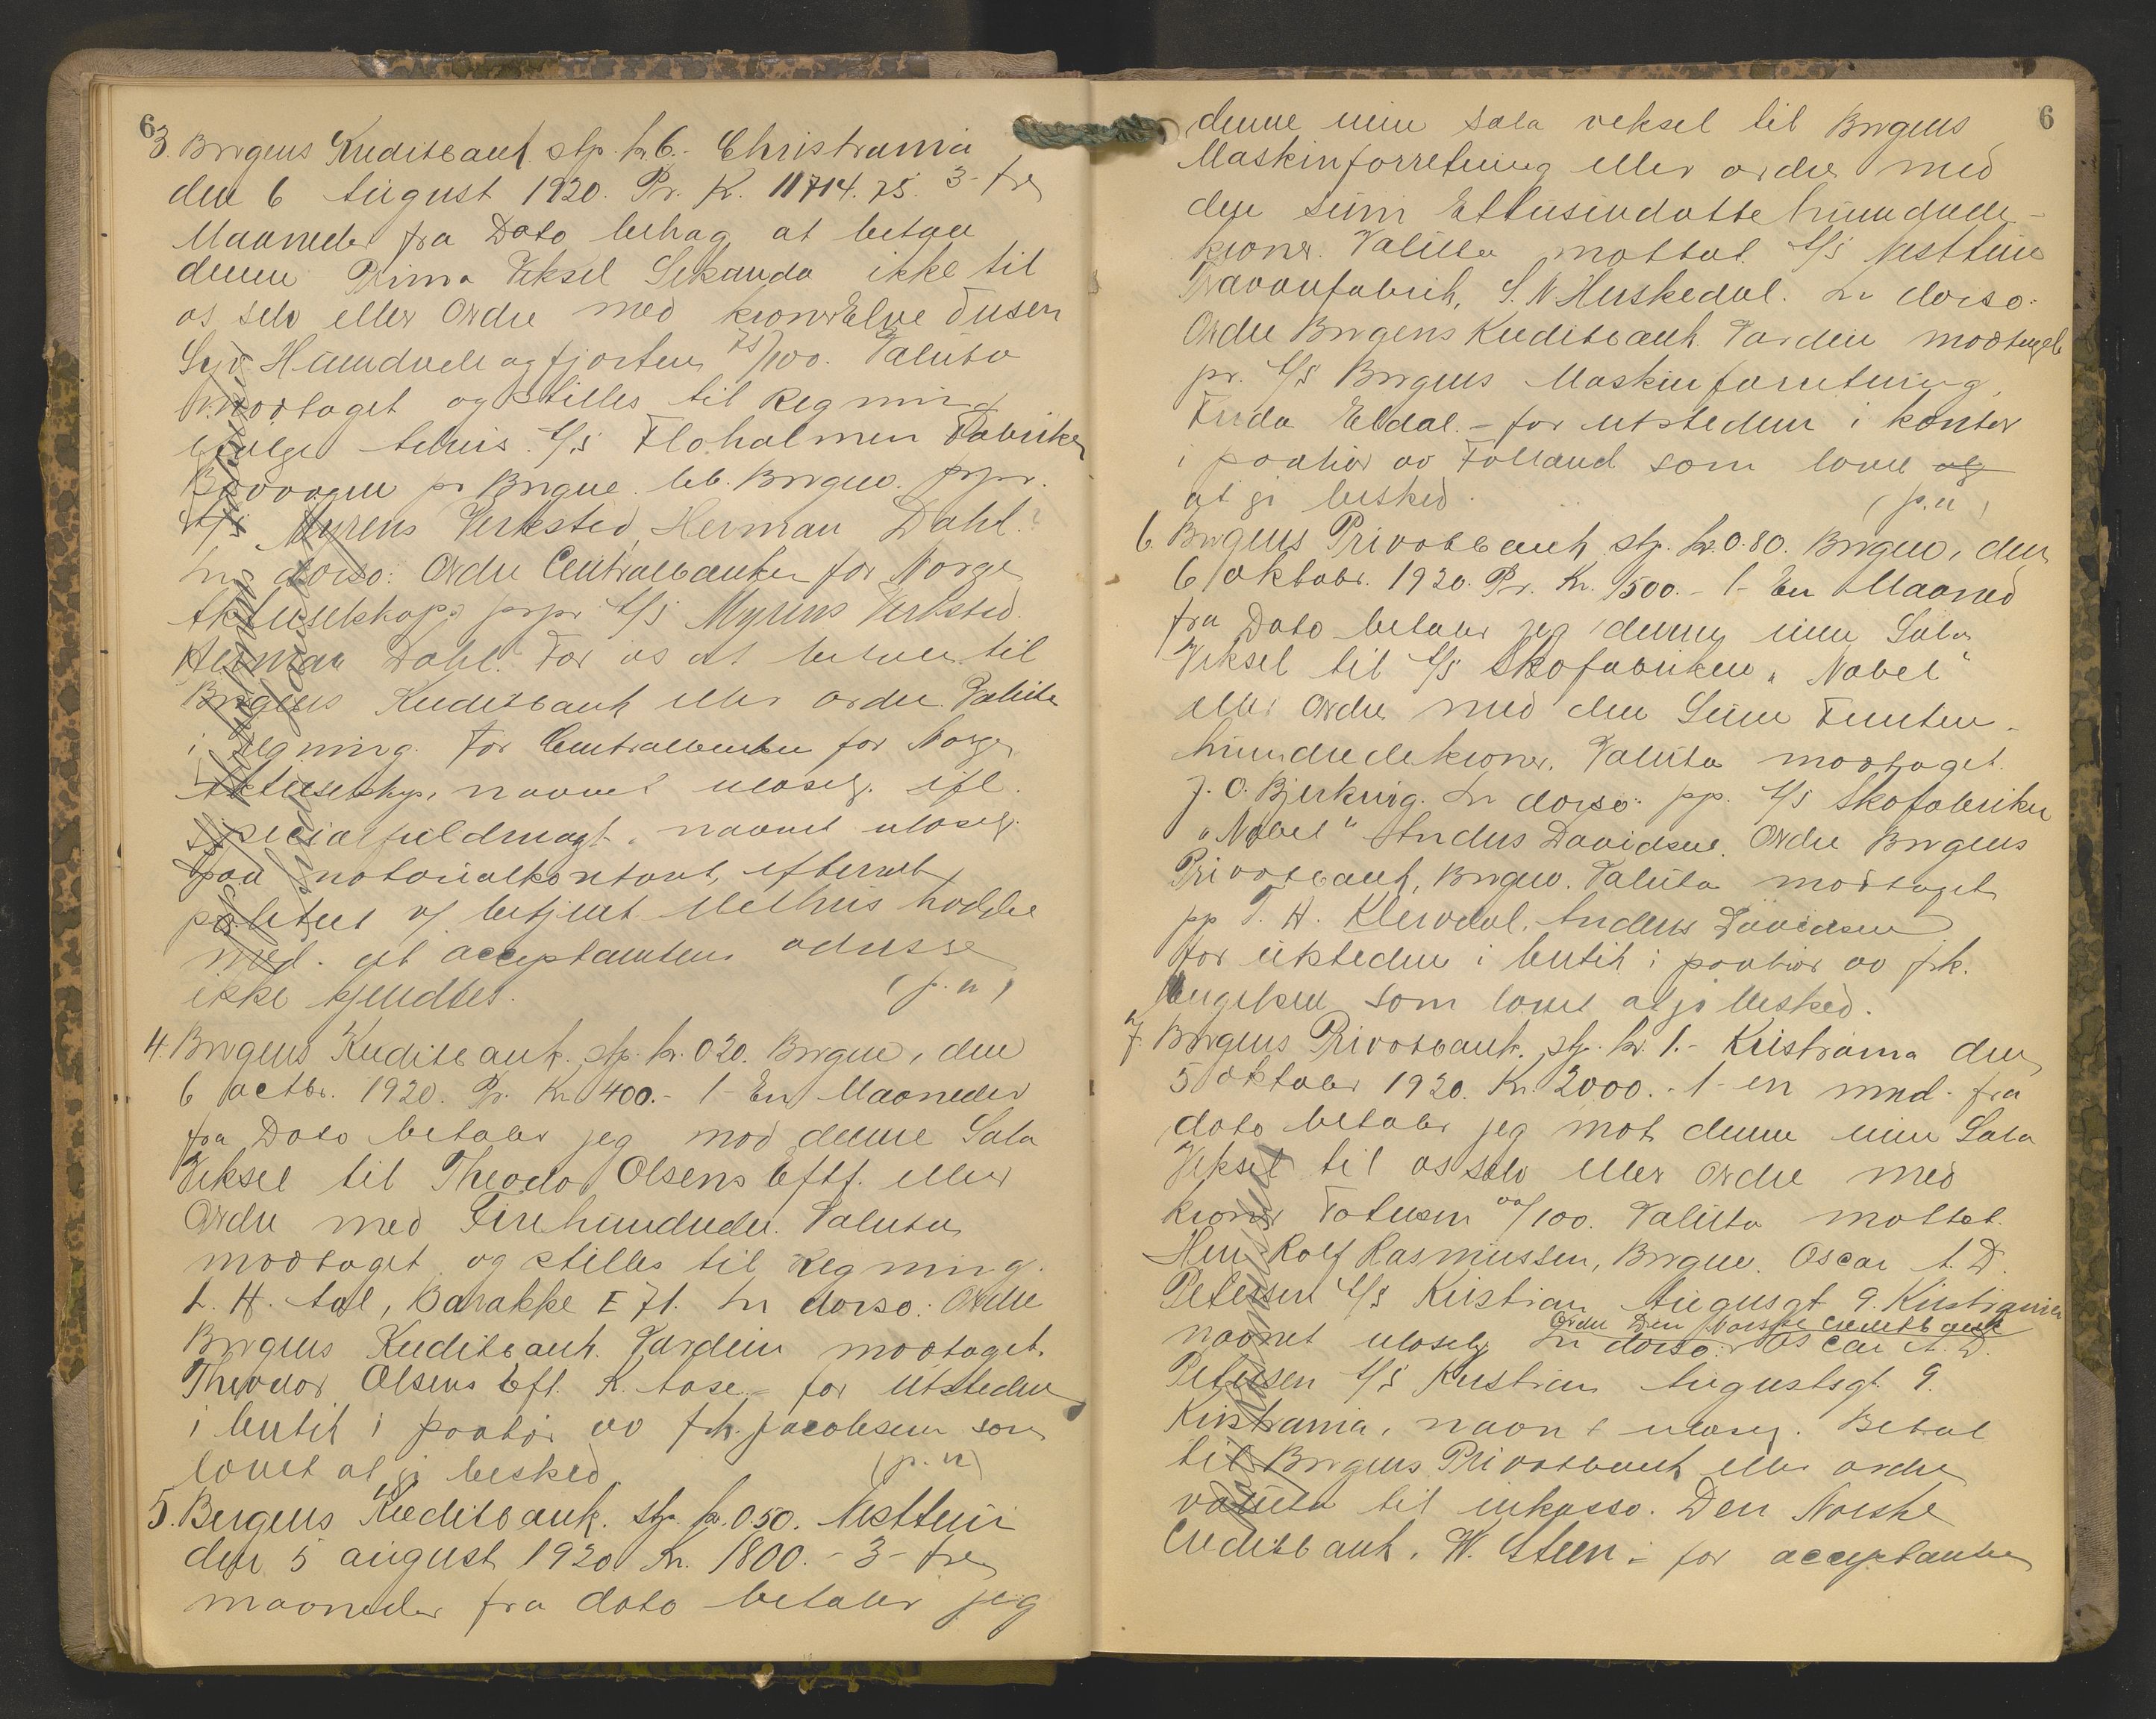 6
3. Bergens Kreditbank stp. kr. 6.- Christiania
den 6 August 1920. Pr. K. 11714.75. 3- tre
Maaneder fra Dato behag at betale
denne Prima Veksel Sekunda ikke til
os selv eller Ordre med kroner Elve Tusen
Syv Hundrede og fjorten 75/100. Valuta
modtaget og stilles til Regning
ifølge A/S Floholmen Fabriker
pr Bergen. Bergen. prpr.
A/S Myrens Verksted, Herman Dahl.
In dorso: Ordre Centralbanken for Norge
Aktieselskap. prpr. A/S Myrens Verksted.
Herman Dahl. For os at betale til
Bergens Kreditbank eller ordre. Valuta
i regning. For Centralbanken for Norge
Aktieselskap, navnet ulæselg. ifl.
specialfuldmagt. navnet ulæselg.
paa notarialkontoret, efterat
politiet v/ betjent Melhus hadde
med. at acceptantens adresse
ikke kjendtes. (p.n)
4. Bergens Kreditbank. stp. kr. 0.20. Bergen, den
6 octbr. 1920. Pr. Kr. 400.- 1- En Maaneder
fra Dato betaler jeg mod denne Sola
Veksel til Theodor Olsens Eftf. eller
Ordre med Firehundrede. Valuta
modtaget og stilles til Regning.
L. H. Aal, Barakke I 71. In dorso: Ordre
Bergens Kreditbank. Værdien modtaget.
Theodor Olsens Eft. K. Aase.- for Utstederen
i butik i paahør av frk. Jacobsen som
lovet at gi besked. (p.n)
5. Bergens Kreditbank. stp. kr. 0.50. Nesttun
den 5 august 1920 Kr. 1800.- 3- tre
maaneder fra dato betaler jeg
6
denne min sola veksel til Bergens
Maskinforretning eller ordre med
den sum Ettusindottehundrede-
kroner. Valuta mottat. A/S Nesttun
S. N. Huskedal. In dorso:
Ordre Bergens Kreditbank. Værdien modtaget
pr. A/S Bergens Maskinforretning,
Frida Eldal.- for utstederen i kontor
i paahør av Folland som lovet
at gi besked. (p.n)
6. Bergens Privatbank stp. kr. 0.80. Bergen, den
6 oktober. 1920. Pr. Kr. 1500.- 1- En Maaned
fra Dato betaler jeg denne min Sola
Veksel til A/S Skofabriken „Nobel"
eller Ordre med den Sum Femten-
hundredekroner. Valuta modtaget.
J. O. Bjerkvig. In dorso: pp. A/S Skofabriken
„Nobel" Anders Davidsen. Ordre Bergens
Privatbank, Bergen. Valuta modtaget
pp T. H. Anders Davidsen
for utstederen i butik i paahør av frk.
som lovet at gi besked.
7. Bergens Privatbank. stp. kr. 1.- Kristiania den
5 oktober 1920. Kr. 2000.- 1- en mnd. fra
dato betaler jeg mot denne min Sola
Veksel til os selv eller Ordre med
Kroner Totusen 00/100. Valuta mottat.
Herr Rolf Rasmussen, Bergen. Oscar A. D.
Petersen A/S Kristian Augusgt 9. Kristiania
Ordre Den Norske Creditbank
navnet ulæselg. In dorso: Oscar A. D.
Petersen A/S Kristian Augustsgt. 9.
Kristiania, navnet ulæselg. Betal
til Bergens Privatbank eller ordre
valuta til inkasso. Den Norske
Creditbank. W. Steen.- for acceptanten